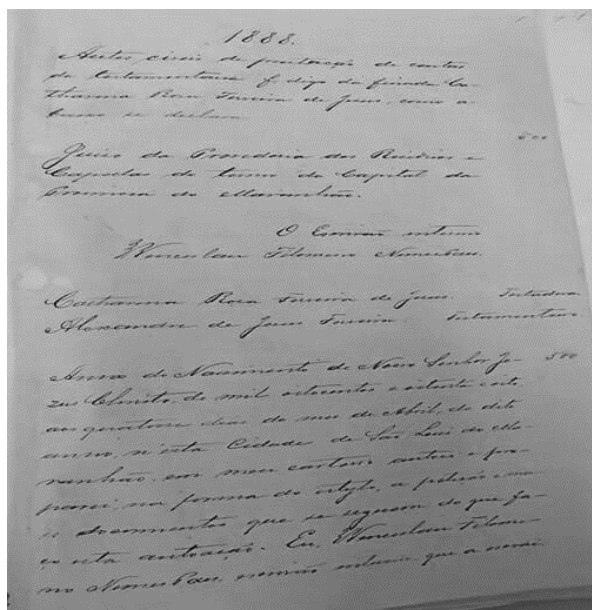 1888.
Autos civeis de prestação de contas
da testamentaria f. digo da finada Ca-
tharina Rosa Ferreira de Jesus, como a-
baixo se declara
500
Juizo da Provedoria dos Residuos e
Capellas do termo da Capital da
Provincia do Maranhão.
O Escrivão interino
Wenceslau Filomeno
Catharina Rosa Ferreira de Jesus. Testadora
Alexandre de Jesus Ferreira. Testamenteiro
Anno do Nascimento de Nosso Senhor Je- 500
zus Christo, de mil oitocentos e oitenta e oito,
aos quatorze dias do mez de Abril, do dito
anno, n'esta Cidade de São Luis do Ma-
ranhão, em meu cartorio autuei e pre-
parei, na forma do estylo, a petição e
e documentos que se seguem do que fa-
ço esta autoação. Eu, Wenceslau Filome-
no escrivão interino que a